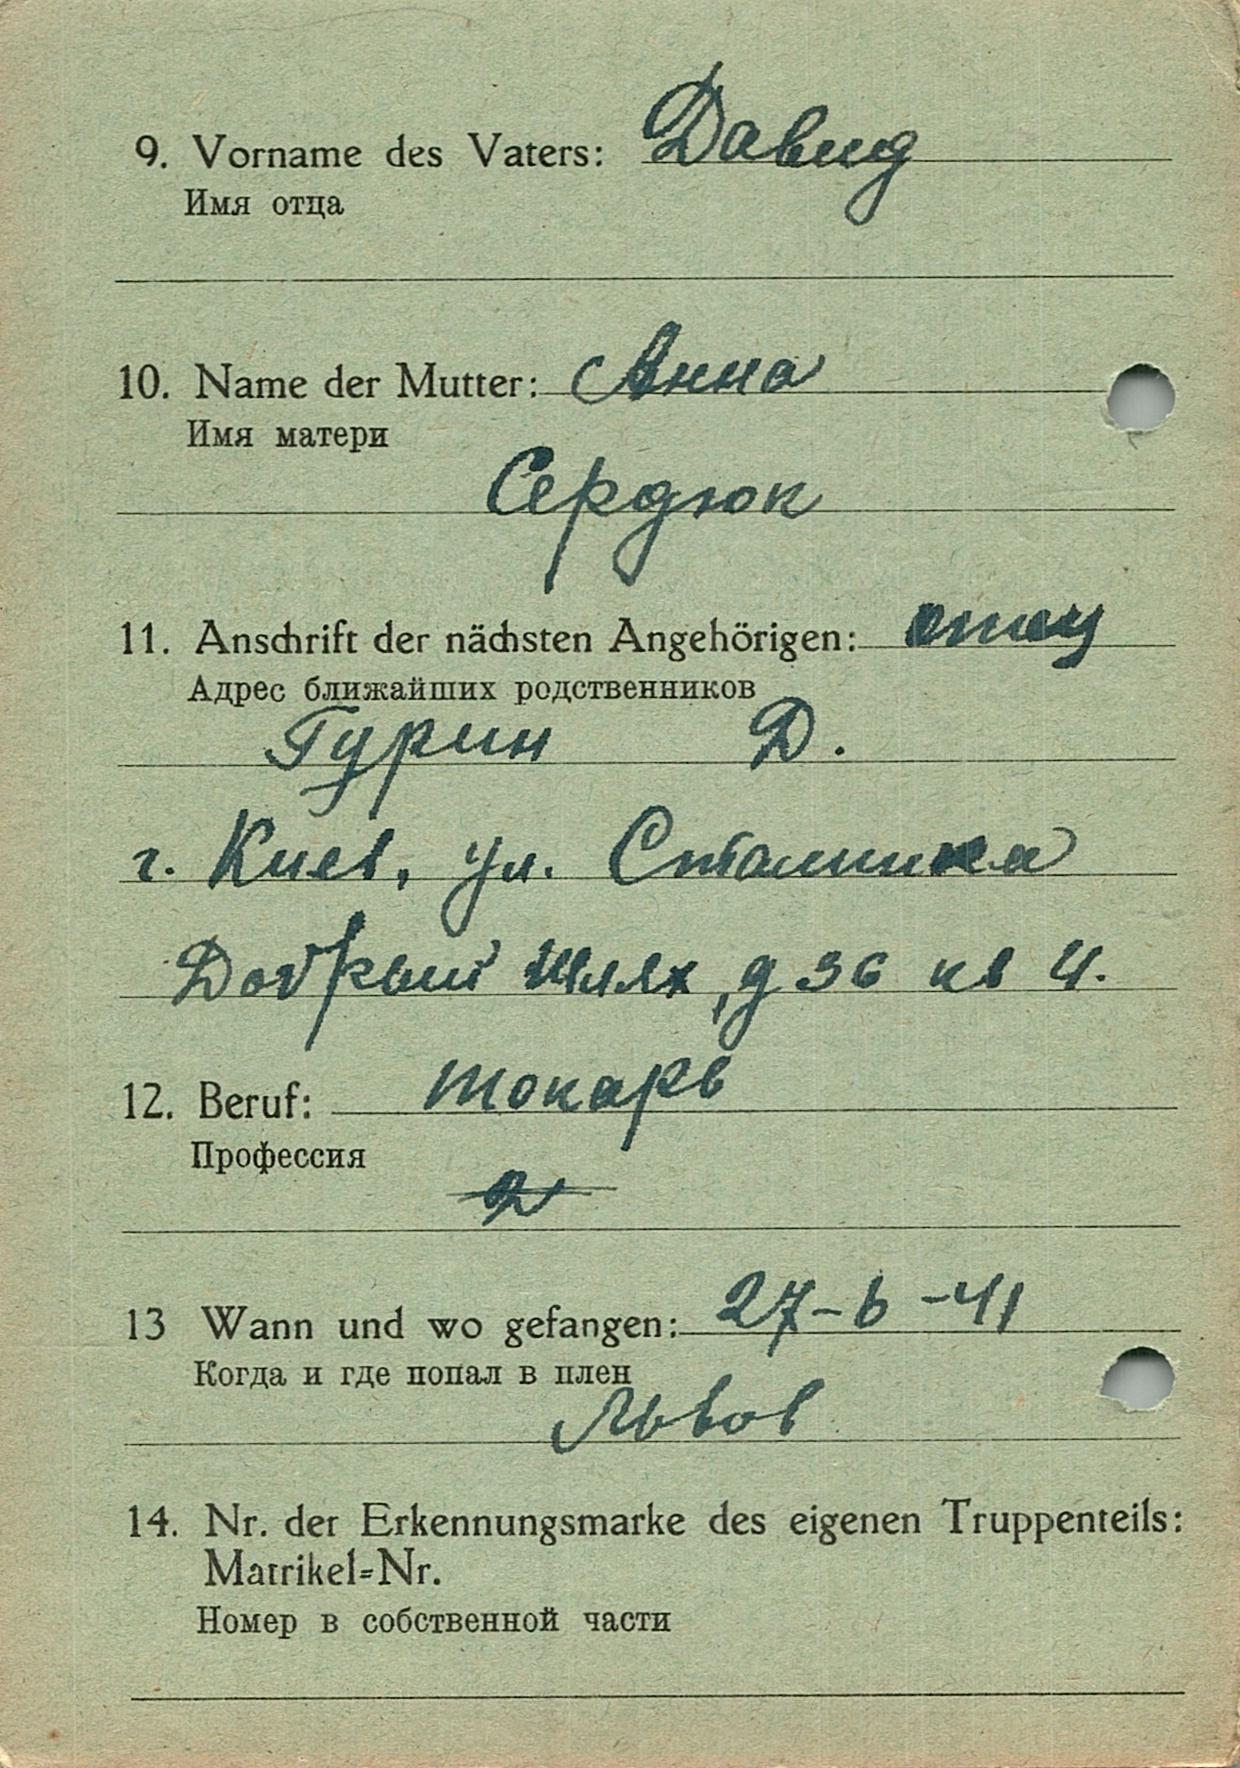 9. Vorname des Vaters: Давид
Имя отца
10. Name der Mutter: Анна
Имя матери
Сердюк
11. Anschrift der nächsten Angehörigen: отец
Адрес ближайших родственников
Гурин Д.
г. Киев, ул. Сталинка
Добрый шлях, д 36 кв 4.
12. Beruf: токарь
Профессия
2
13 Wann und wo gefangen: 27-6-41
Когда и где попал в плен
Львов
14. Nr. der Erkennungsmarke des eigenen Truppenteils:
Matrikel=Nr.
Номер в собственной части